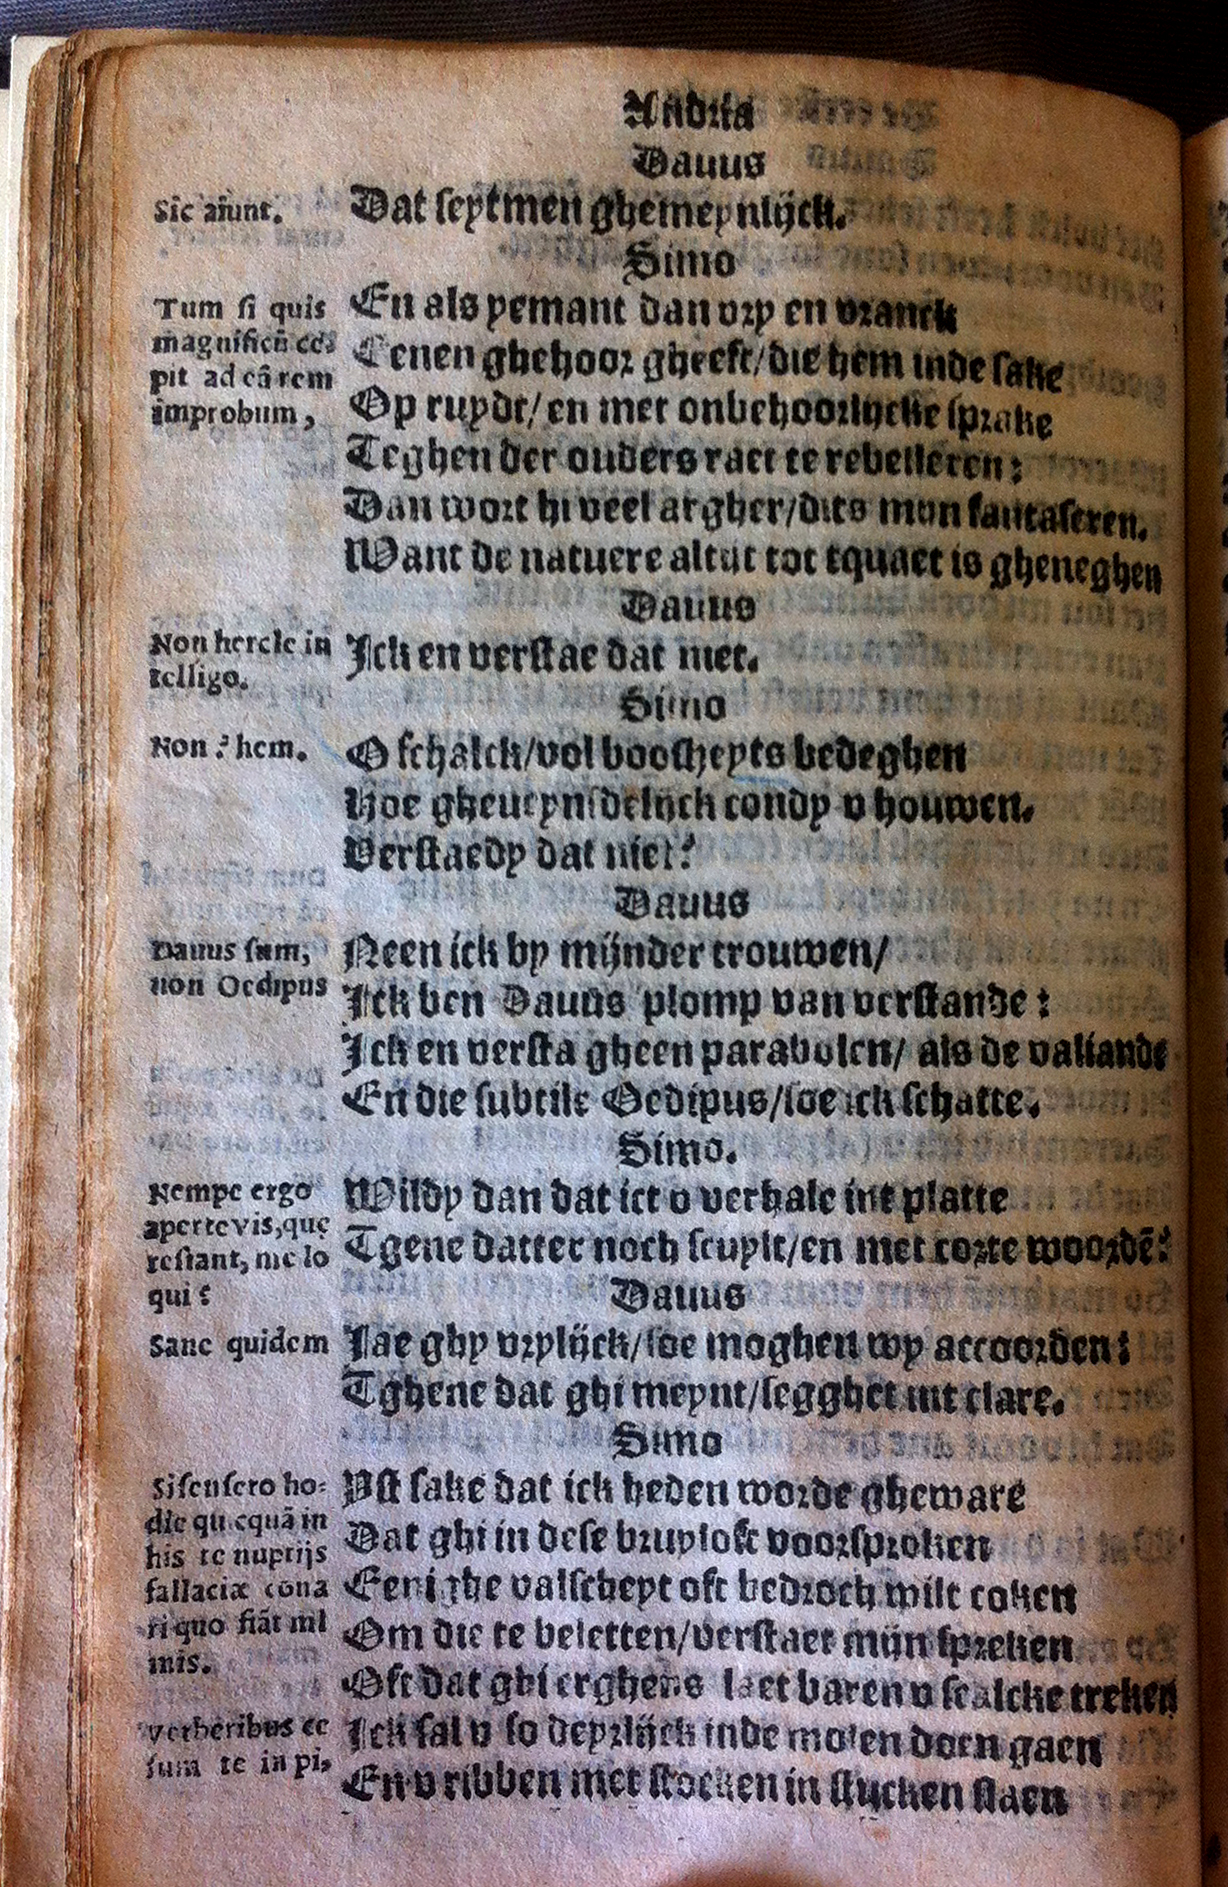 Andria
Dauus
Sic aiunt.
Dat seytmen ghemeynlijck.
Simo
Tum si quis
magnificū ce⸗
pit ad eā rem
improbum,
En als yemant dan vry en vranck
Eenen ghehoor gheeft/die hem inde sake
Op ruydt/en met onbehoorlijcke sprake
Teghen der ouders raet te rebelleren:
Dan wort hi veel argher/dits mijn fantaseren.
Want de natuere altijt tot tquaet is gheneghen
Dauus
Non hercle in
telligo.
Ick en verstae dat niet.
Simo
Non? hem.
O schalck/vol boosheyts bedeghen
Hoe gheueynsdelijck condy v houwen.
Verstaedy dat niet?
Dauus
Dauus sum,
non Oedipus
Neen ick by mijnder trouwen/
Ick ben Dauus plomp van verstande:
Ick en versta gheen parabolen/ als de valiande
En die subtile Oedipus/soe ick schatte.
Simo.
Nempe ergo
aperte vis, que
restant, me lo
qui?
Wildy dan dat ict v verhale int platte
Tgene datter noch scuylt/en met corte woordē?
Dauus
Sane quidem
Jae ghy vrylijck/soe moghen wy accoorden:
Tghene dat ghi meynt/segghet int clare.
Simo
Si sensero ho⸗
die quicquā in
his te nuptijs
fallaciæ cona
ri quo fiāt mi
nis.
Yst sake dat ick heden worde gheware
Dat ghi in dese bruyloft voorsproken
Eenighe valscheyt oft bedroch wilt coken
Om die te beletten/verstaet mijn spreken
Oft dat ghi erghens laet baren v scalcke treken
Verberibus ce
sum te in pi⸗
Ick sal v so deyrlijck inde molen doen gaen
En v ribben met stocken in stucken slaen